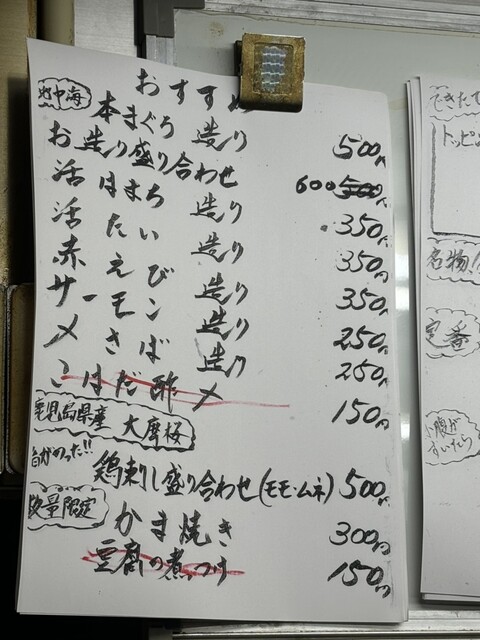 おすすめ
地中海 本まぐろ 造り 500円
お造り盛り合わせ 600 500円
活はまち 造り 350円
活たい 造り 350円
赤えび 造り 350円
サーモン 造り 250円
〆さば 造り 250円
こはだ酢〆 150円
鹿児島県産 大摩桜
鶏刺し盛り合わせ(モモ・ムネ) 500円
数量限定 かま焼き 300円
豆腐の煮つけ 150円
できたて
トッピ
名物!
定番
小腹が
すいたら